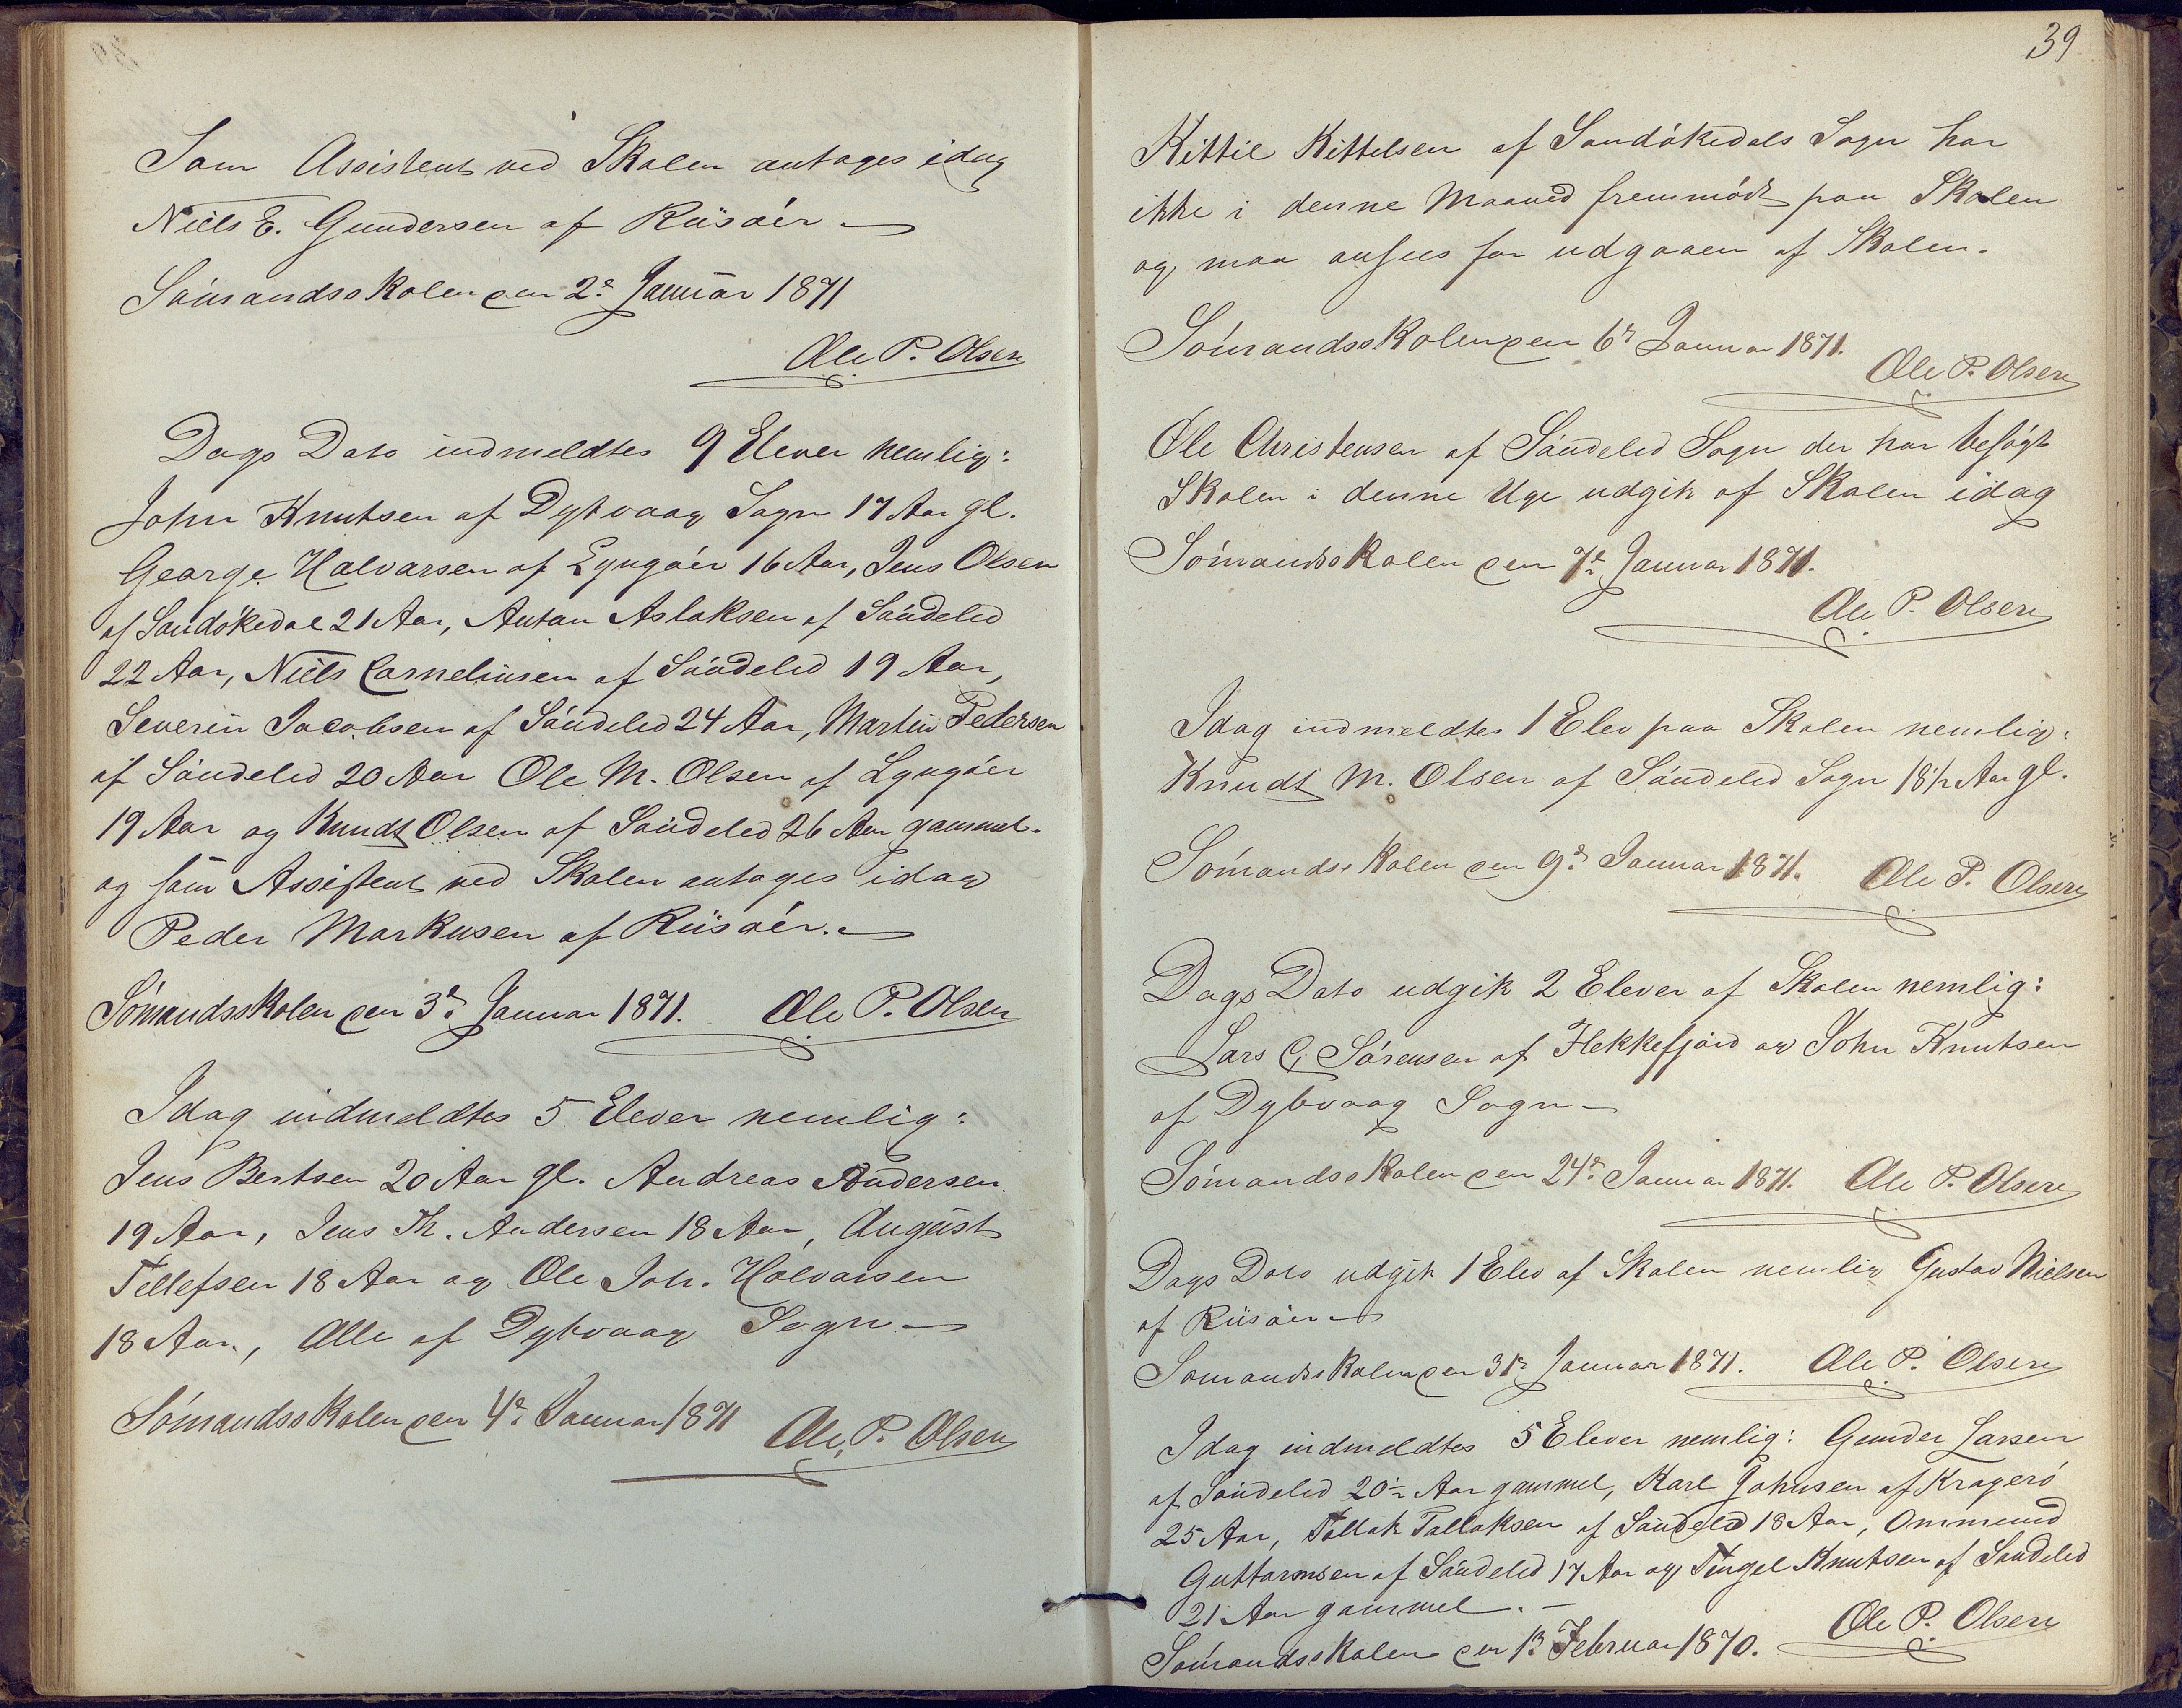 Som Assistent ved Skolen antoges idag
Niels E. Gundersen af Riisöer
Sömandsskolen den 2de Januar 1871
Ole P. Olsen
Dags Dato indmeldtes 9 Elever nemlig:
John Knutsen af Dybvaag Sogn 17 Aar gl.
George Halvorsen af Lyngöer 16 Aar, Jens Olsen
af Sandökedal 21 Aar, Anton Aslaksen af Söndeled
22 Aar, Niels Corneliusen af Söndeled 19 Aar,
Severin Jacobsen af Söndeled 24 Aar, Martin Pedersen
af Söndeled 20 Aar Ole M. Olsen af Lyngöer
19 Aar og Knudt Olsen af Söndeled 26 Aar gammel.
og som Assistent ved Skolen antoges idag
Peder Markusen af Riisöer.
Sömandsskolen den 3de Januar 1871. Ole P. Olsen
Idag indmeldtes 5 Elever nemlig:
Jens Bertsen 20 Aar gl. Andreas Andersen
19 Aar, Jens Th. Andersen 18 Aar, August
Tellefsen 18 Aar og Ole Joh. Halvorsen
18 Aar, Alle af Dybvaag Sogn
Sömandsskolen den 4de Januar 1871 Ole P. Olsen
39
Kittil Kittelsen af Sandökedals Sogn har
ikke i denne Maaned fremmödt paa Skolen
og maa ansees for udgaaen af Skolen.
Sömandsskolen den 6te Januar 1871.
Ole P. Olsen
Ole Christensen af Söndeled Sogn der har besögt
Skolen i denne Uge udgik af Skolen idag
Sömandsskolen den 7de Januar 1871.
Ole P. Olsen
Idag indmeldtes 1 Elev paa Skolen nemlig:
Knudt M. Olsen af Söndeled Sogn 18½ Aar gl.
Sömandsskolen den 9de Januar 1871. Ole P. Olsen
Dags Dato udgik 2 Elever af Skolen nemlig:
Lars C. Sörensen af Flekkefjord og John Knutsen
af Dybvaag Sogn
Sömandsskolen den 24de Januar 1871. Ole P. Olsen
Dags Dato udgik 1 Elev af Skolen nemlig Gustav Nielsen
af Riisöer
Sömandsskolen den 31te Januar 1871. Ole P. Olsen
Idag indmeldtes 5 Elever nemlig: Gunder Larsen
af Söndeled 20½ Aar gammel, Karl Johnsen af Kragerö
25 Aar, Tallak Tallaksen af Söndeled 18 Aar, Ommund
Guttormsen af Söndeled 17 Aar og Tingel Knutsen af Söndeled
21 Aar gammel.
Ole P. Olsen
Sömandsskolen den 1ste Februar 1870.